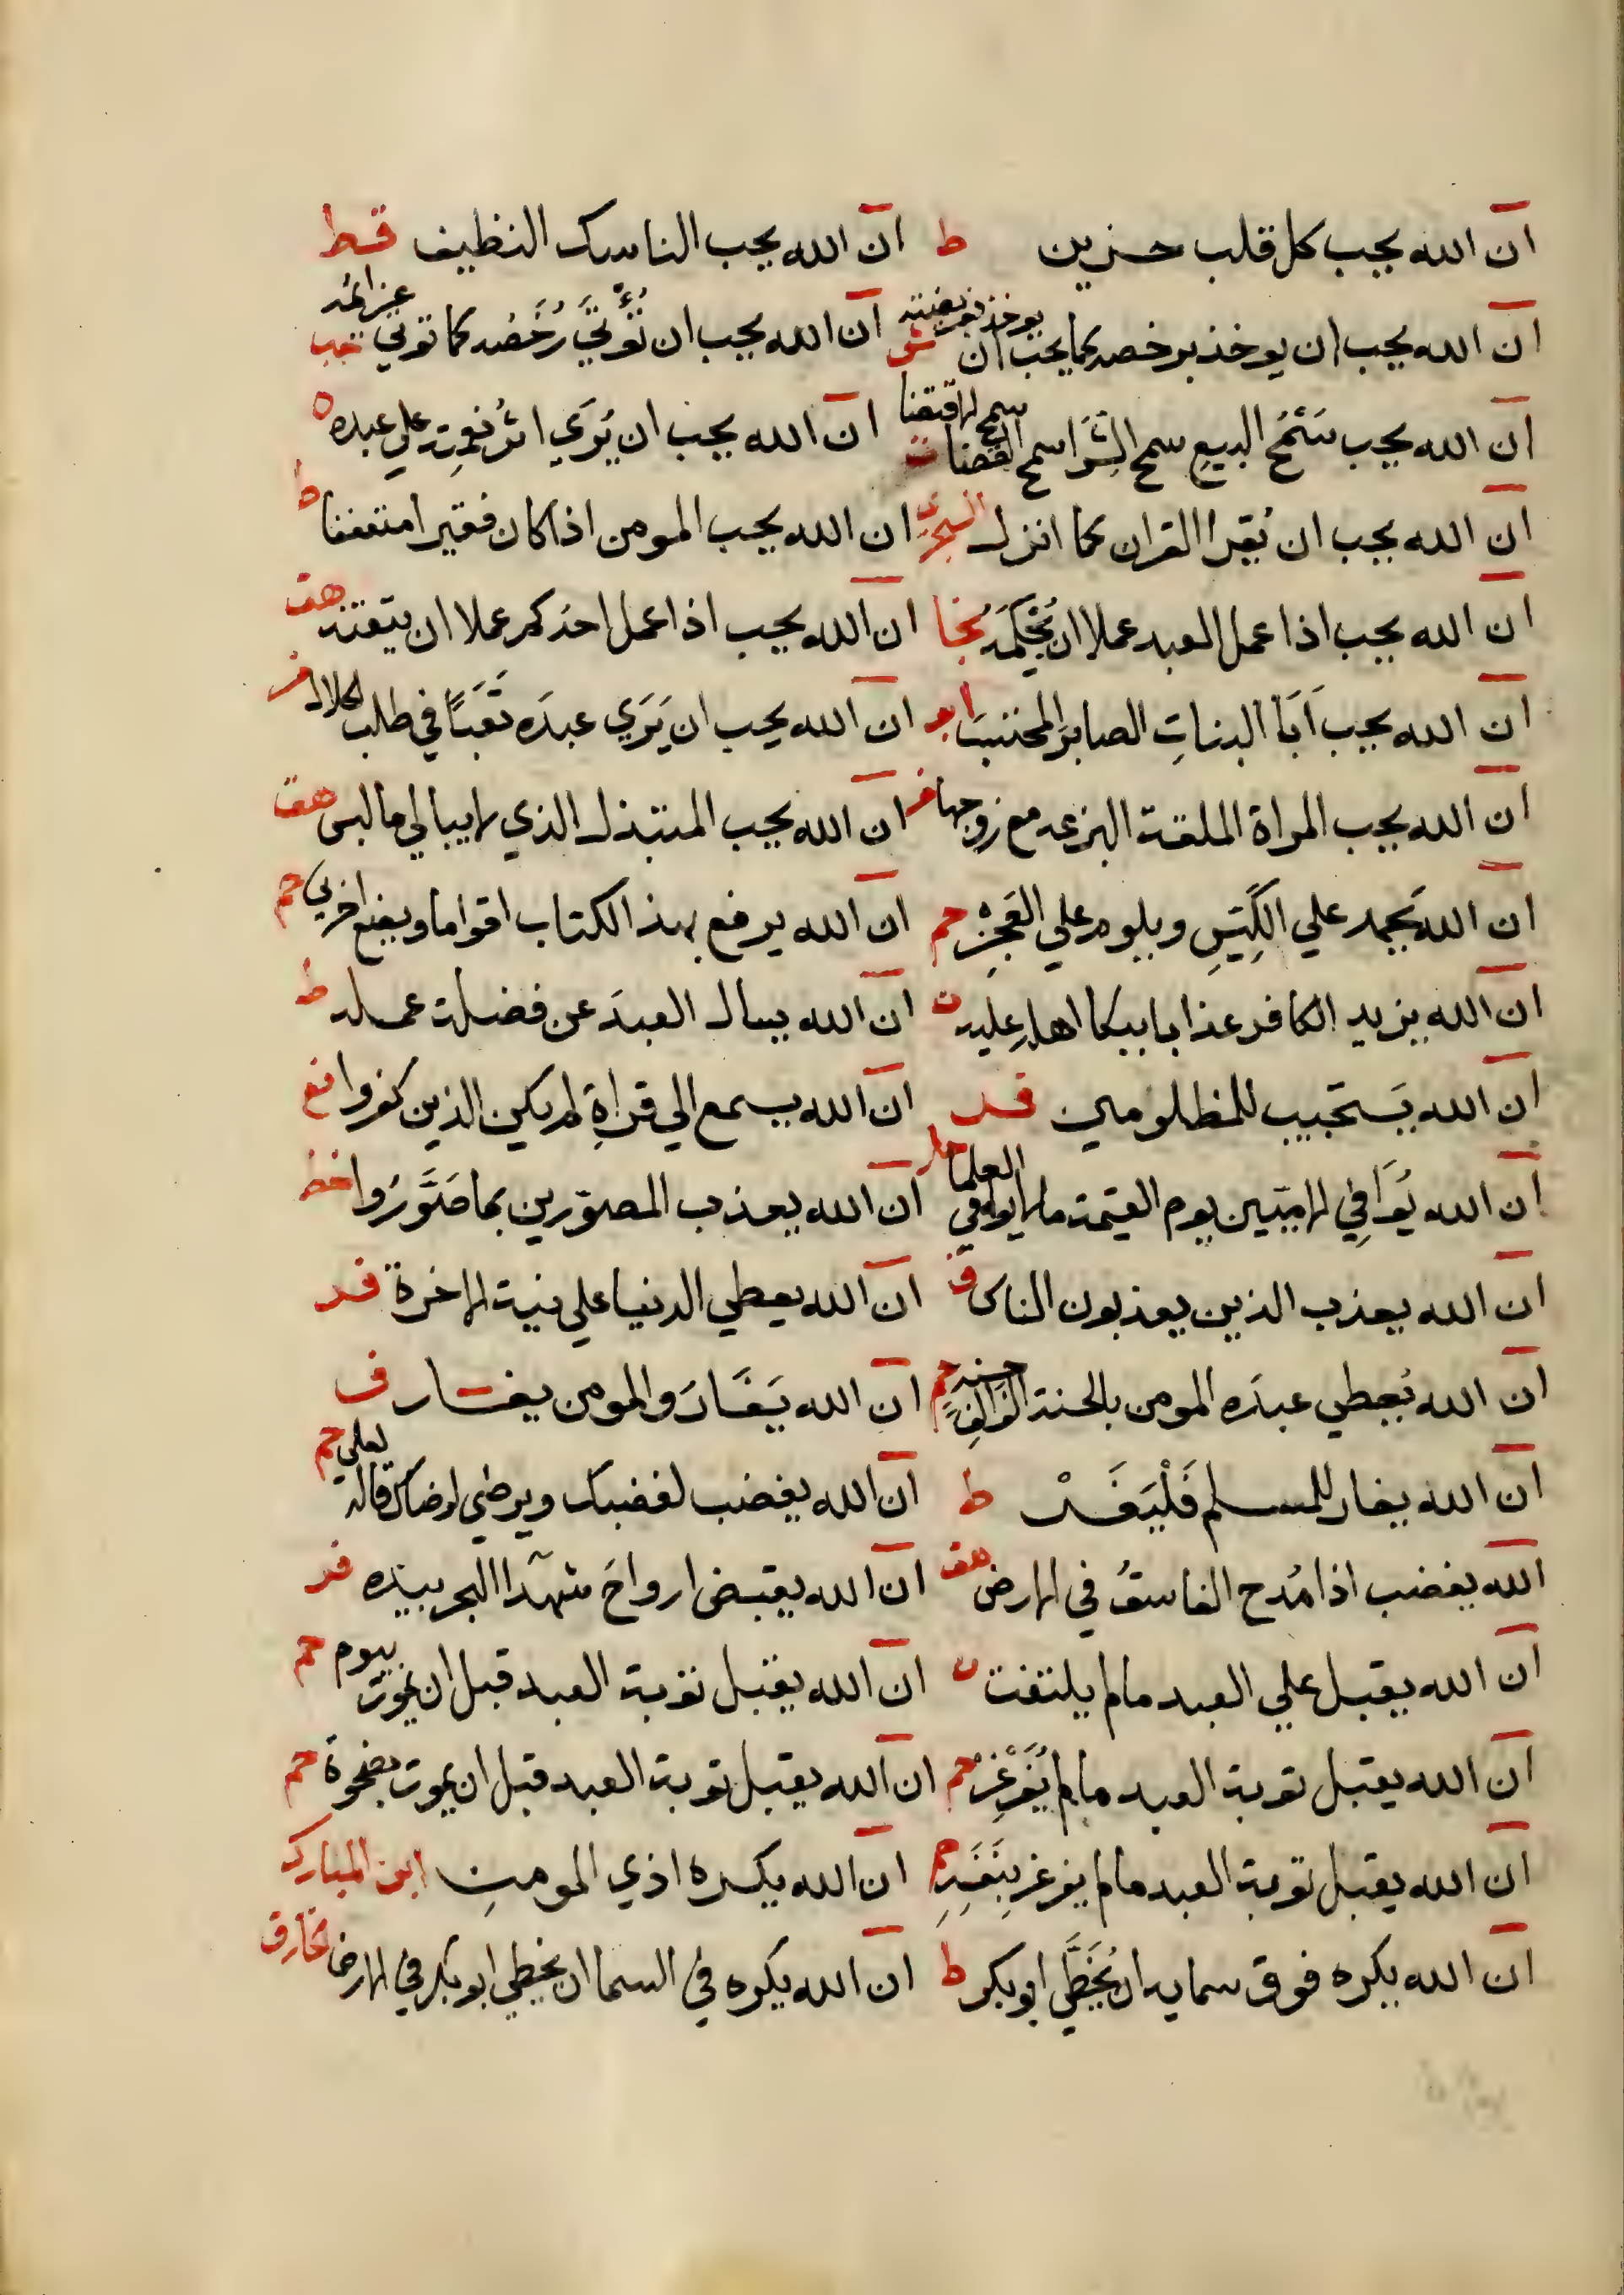 ان الله يحب كل قلب حزين ط ان الله يحب الناسك النظيف قط
ان الله يحب ان يوخذ برخصه كما يحب ان يوخذ ان الله يحب ان تُؤتَي رُخَصُه كما توتي عزائمه
ان الله يحب سَمْحَ البيع سمح الشِرَا سمح القضا ت ان الله يحب ان يُرَي اثرُ نعمتِه علي عبده
ان الله يحب ان يُقرا القران كما انزل السجزي ان الله يحب المومن اذا كان فقيرا متعففا ط
ان الله يحب اذا عمل العبد عملا ان يُحْكِمَه نجا ان الله يحب اذا عمل احدكم عملا ان يتقنه هق
ان الله يحب اَبَا البناتِ الصابرَ المحتسبَ ان الله يحب ان يَرَي عبدَه تَعَبًا في طلب الحلال فر
ان الله يحب المراة الملقة البزعه مع زوجها فر ان الله يحب المتبذل الذي لا يبالي ما لبس هق
ان الله يَحمد علي الكَيِّسِ ويلوم علي العَجْزِ حم ان الله يرفع بهذا الكتاب اقواما ويضع اخرين حم
ان الله يزيد الكافر عذابا ببكا اهلِه عليه ن ان الله يسال العبدَ عن فضلة عمله ط
ان الله يَستجيب للمظلومين فر ان الله يسمع الي قراةِ لم يكن الذين كفروا نع
ان الله يُوَافِي الاميين يوم القيمة ما لا يوافي العلما حل ان الله يعذب المصوّرين بما صَوَّرُوا خط
ان الله يعذب الذين يعذبون الناس ق ان الله يعطي الدنيا علي نية الاخرة فر
ان الله يُعطي عبدَه المومن بالحسنة الفَ الفِ حسنه حم ان الله يَغَارُ والمومن يغار ف
ان الله يغار للمسلم فَلْيَغَرْ ط ان الله يغضب لغضبك ويرضي لرضاك قاله لعلي حم
الله يغضب اذا مُدح الفاسقُ في الارض هق ان الله يقبض ارواحَ شهدا البحر بيده فر
ان الله يقبل علي العبد ما لم يلتفت ن ان الله يقبل توبة العبد قبل ان يموت بيوم حم
ان الله يقبل توبة العبد ما لم يُغَرْغِرْ حم ان الله يقبل توبة العبد قبل ان يموت بضحوة حم
ان الله يقبل توبة العبد ما لم يغرغر بِنَفَسِه حم ان الله يكره اذي المومنِ ابن المبارك
ان الله يكره فوق سمايه ان يُخَطَّي ابو بكر ط ان الله يكره في السما ان يخطي ابو بكر في الارض